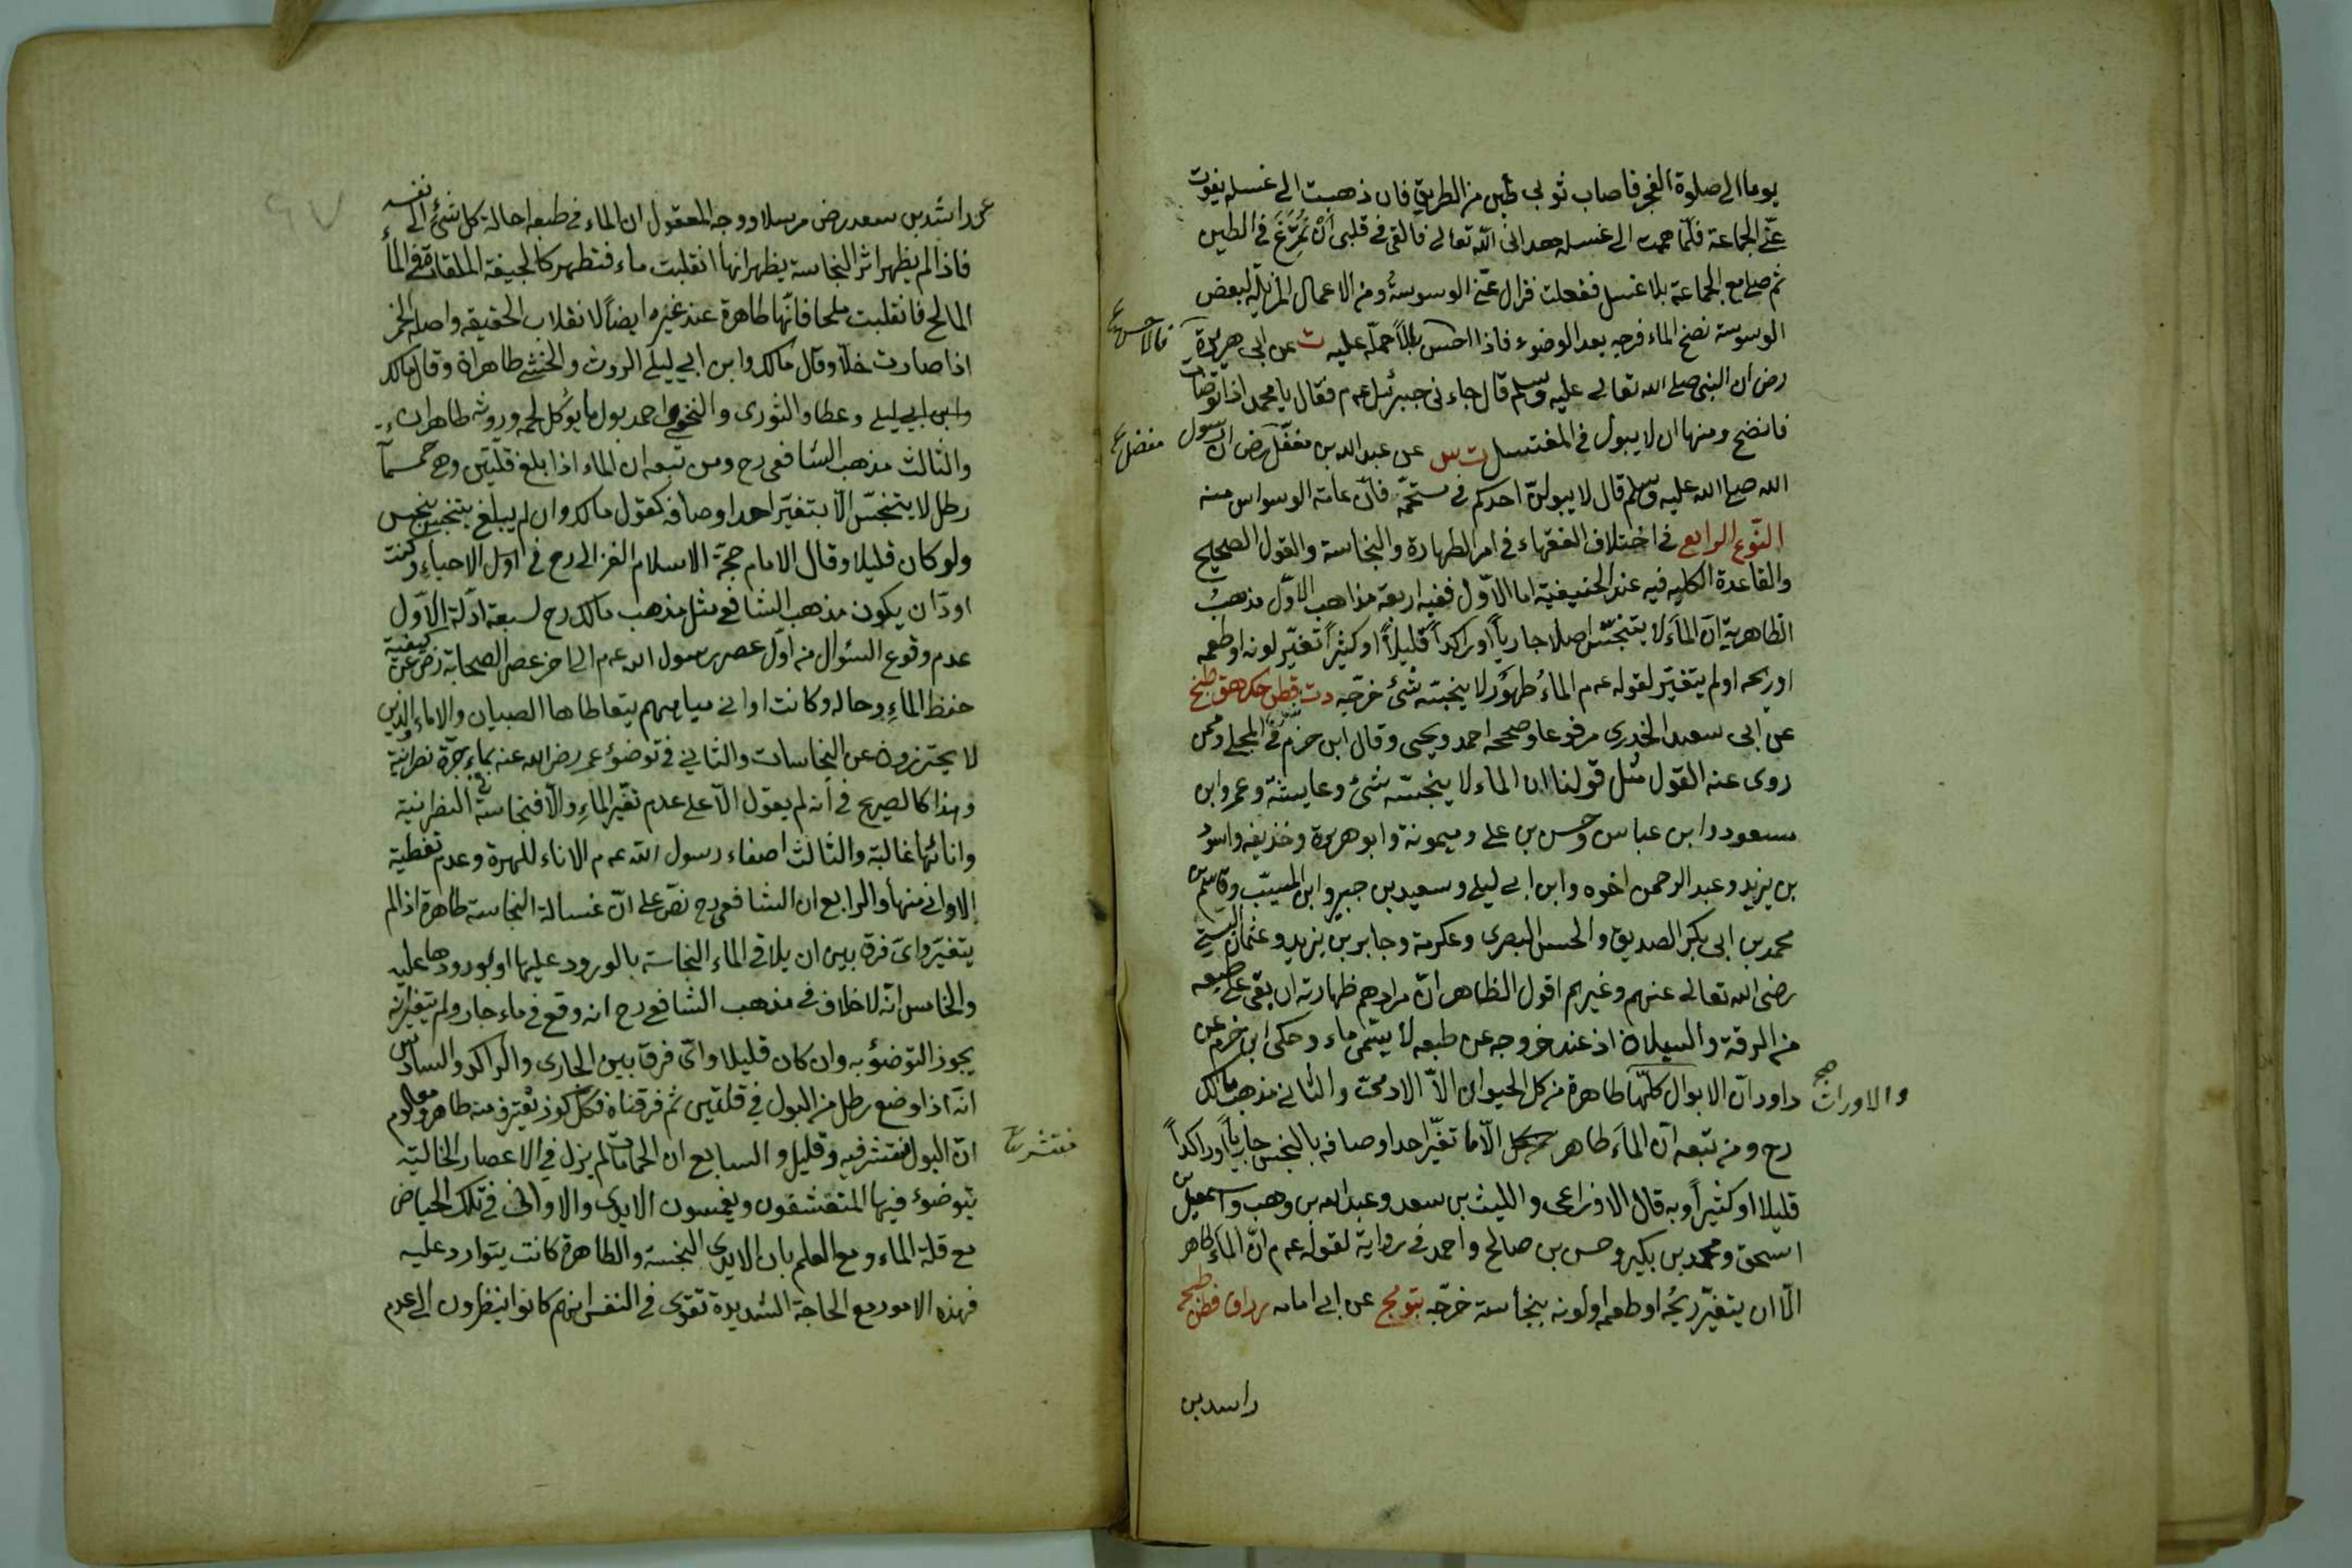 يوما الى صلوة الفجر فاصاب ثوبى طين من الطريق فان ذهبت الى غسله يفوت
عنّى الجماعة فلمّا همت الى غسله هدانى اللّه تعالى فالقى فى قلبى اَنْ تُمَرِّغَ فى الطين
ثم صلى مع الجماعة بلا غسل ففعلت فزال عنّى الوسوسة ومن الاعمال المزيلة لبعض
الوسوسة نضح الماء فرجه بعد الوضوء فاذا احس بللاً حمله عليه ت عن ابى هريرة
رض ان النبى صلى الله تعالى عليه وسلم قال جاءنى جبرئيل عم فقال يا محمد اذا توضأت
فانضح ومنها ان لا يبول فى المغتسل ت س عن عبد الله بن مغفّل رض انّ رسول
الله صلى الله عليه وسلم قال لا يبولنّ احدكم فى مستحمّه فانّ عامة الوسواس منه
النّوع الرابع فى اختلاف الفقهاء فى امر الطهارة والنجاسة والقول الصحيح
والقاعدة الكليه فيه عند الحنيفية اما الاوّل ففيه اربعة مذاهب الاوّل مذهب
الظاهرية ان الماءَ لا يتنجّس اصلا جارياً او راكداً قليلاً او كثيراً تغيّر لونه او طعمه
او ريحه او لم يتغيّر لقوله عم الماءُ طهوُر لا ينجسّه شئ خرّجه دت قطن حك هق طح
عن ابى سعيد الخدرى مرفوعا وصححه احمد ويحيى وقال ابن حزم فى المحلى وممن
روى عنه القول مثل قولنا ان الماء لا ينجسّه شئ وعايشة وعمر وابن
مسعود وابن عباس وحسن بن على وميمونة وابو هريرة وخذيفه واسود
بن يزيد وعبد الرحمن اخوه وابن ابى ليلى وسعيد بن جبير وابن المسيّب وقاسم بن
محمد بن ابى بكر الصديق والحسن البصرى وعكرمة وجابر بن يزيد وعثمان البستى
رضى الله تعالى عنهم وغيرهم اقول الظاهر انّ مرادهم طهارته ان بقى على طبعه
من الرقة والسيلان اذ عند خروجه عن طبعه لا يسّمى ماء وحكى ابن حزم عن
داود انّ الابوال كلّها طاهرة من كل الحيوان الاّ الادمىّ والثانى مذهب مالك
والاوراث صح
رح ومن تبعه انّ الماَء طاهر الّا ما تغيّر احد اوصافه بالنجس جارياً او راكداً
قليلا او كثيراً وبه قال الاوزاعى والليث بن سعد وعبد الله بن وهب واسمعيل بن
اسحق ومحمد بن بكير وحسن بن صالح واحمد فى رواية لقوله عم انّ الماَء طاهر
الّا ان يتغيّر ريحُه او طعمه او لونه بنجاسة خرّجه عن ابى امامه
راسد بن
عن راشد بن سعد رض مرسلا ووجه المعقول ان الماء فى طبعه احالة كل شئ الى نفسه
فاذا لم يظهر اثر النجاسة يظهر انها انقلبت ماء فتطهر كالجيفة الملقاة فى الماء
المالح فانقلبت ملحا فانّها طاهرة عند غيره ايضاً لانقلاب الحقيقه واصله الخمر
اذا صارت خلّا وقال مالك وابن ابى ليلى الروث والخثى طاهران وقال مالك
وابن ابى ليلى وعطا والثورى والنخعى واحمد بول ما يؤكل لحمه وروثه طاهران
والثالث مذهب الشافعى رح ومن تبعه ان الماء اذا بلغ قلتين وهى خمسمائة
رطل لا يتنجّس الّا بتغيّر احد اوصافه كقول مالك وان لم يبلغ يتنجس بنجس
ولو كان قليلا وقال الامام حجة الاسلام الغزالى رح فى اول الاحياءِ وكنت
اودّ ان يكون مذهب الشافعى مثل مذهب مالك رح لسبعة ادّلة الاَوّل
عدم وقوع السئوال من اوّل عصر رسول الله عم الى اخر عصر الصحابة رض عن كيفية
حفظ الماءِ وحاله وكانت اوانى مياههم يتعاطاها الصبيان والاماء الذين
لا يحترزون عن النجاسات والثانى فى توضؤ عمر رضى الله عنه بماءِ جرّة نصرانية
وهذا كالصريح فى أنه لم يعوّل الّا على عدم تغيّر الماءِ والّا فنجاسة النصرانية
وانائها غالبة والثالث اصغاء رسول الله عم الاناء للهرة وعدم تغطية
الاوانى منها والرابع ان الشافعى رح نصّ على انّ غسالة النجاسة طاهرة اذا لم
يتغيّر واىّ فرق بين ان يلاقى الماء النجاسة بالورود عليها او بورودها عليه
والخامس انّه لا خلاف فى مذهب الشافعى رح انه وقع فى ماء جار ولم يتغير انه
يجوز التوضؤ به وان كان قليلا واىّ فرق بين الجارى والراكد والسادس
انّه اذا وضع رطل من البول فى قلتين ثم فرقناه فكلّ كوز يغترف منه طاهر ومعلوم
انّ البول منتشر فيه وقليل والسابع ان الحمامات لم يزل فى الاعصار الخالية
يتوضوء فيها المتقشفون ويغمسون الايدى والاوانى فى تلك الحياض
مع قلة الماء ومع العلم بان الايدى النجسة والطاهرة كانت يتوارد عليه
فهذه الامور مع الحاجة الشديدة تقوى فى النفس انهم كانوا ينظرون الى عدم